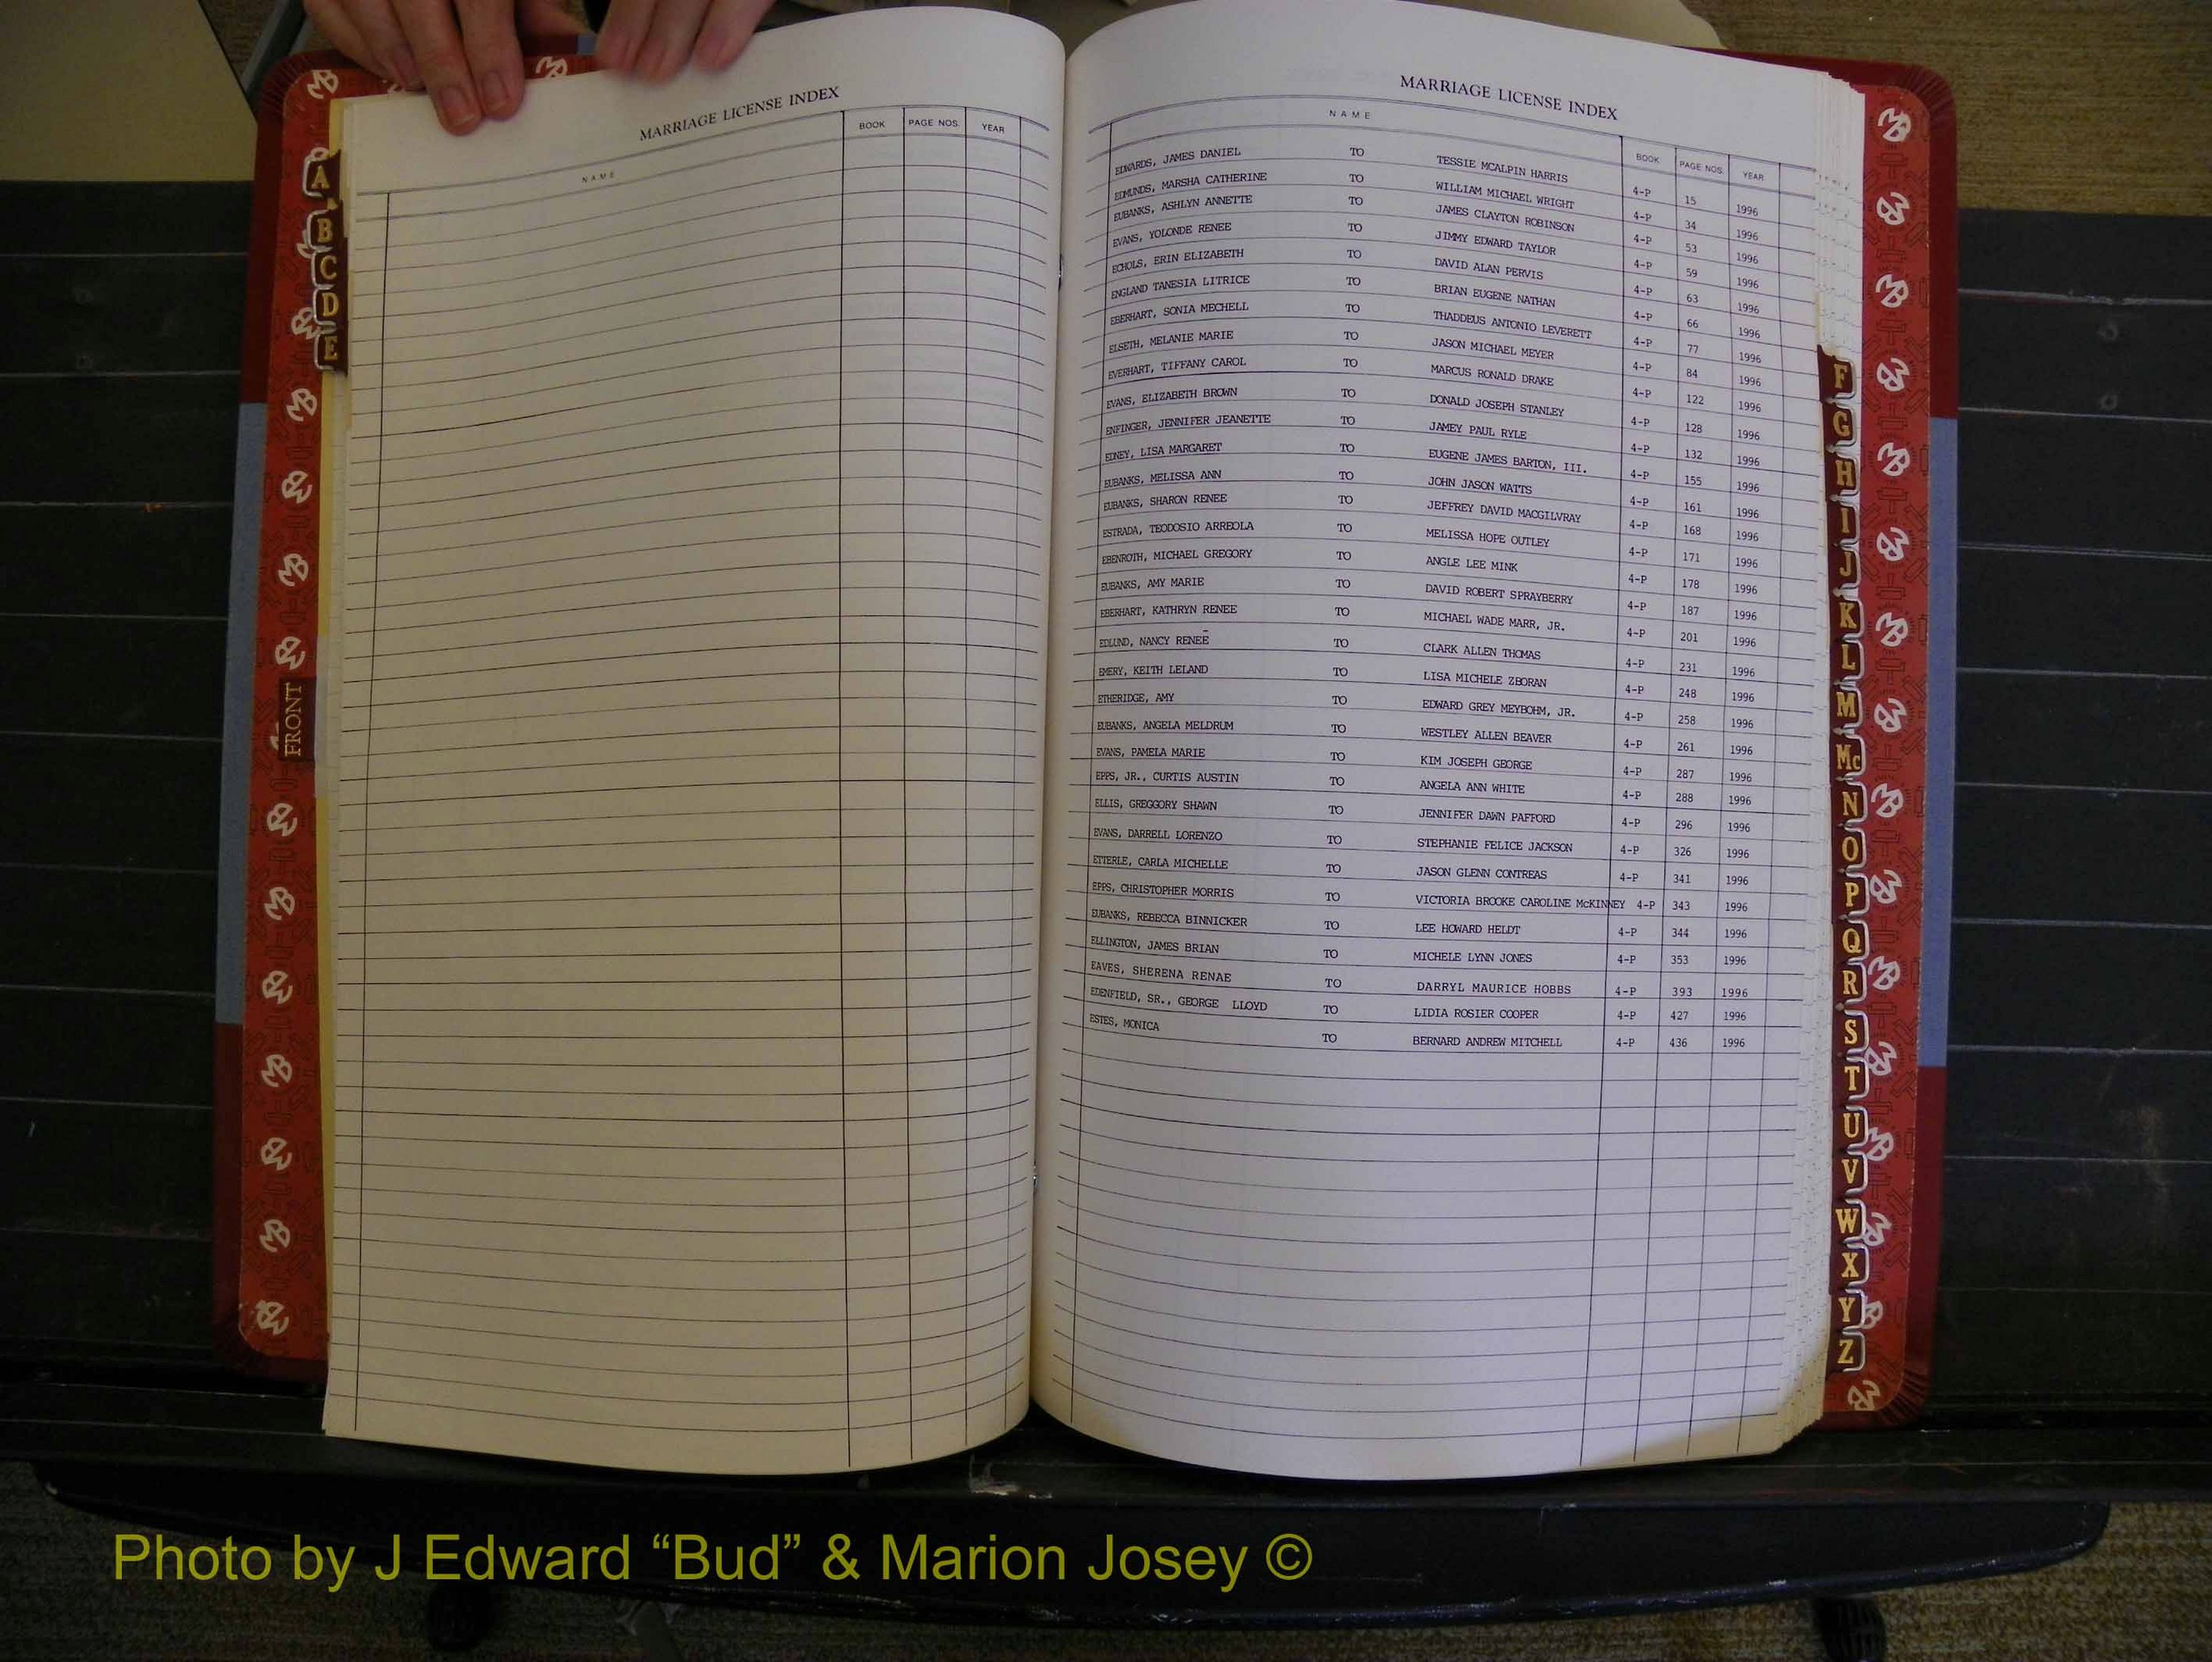 MARRIAGE LICENSE INDEX
NAME BOOK PAGE NOS. YEAR
MARRIAGE LICENSE INDEX
NAME BOOK PAGE NOS. YEAR
EDWARDS, JAMES DANIEL TO TESSIE MCALPIN HARRIS 4-P 15 1996
EDMUNDS, MARSHA CATHERINE TO WILLIAM MICHAEL WRIGHT 4-P 34 1996
EUBANKS, ASHLYN ANNETTE TO JAMES CLAYTON ROBINSON 4-P 53 1996
EVANS, YOLONDE RENEE TO JIMMY EDWARD TAYLOR 4-P 59 1996
ECHOLS, ERIN ELIZABETH TO DAVID ALAN PERVIS 4-P 63 1996
ENGLAND TANESIA LITRICE TO BRIAN EUGENE NATHAN 4-P 66 1996
EBERHART, SONIA MECHELL TO THADDEUS ANTONIO LEVERETT 4-P 77 1996
ELSETH, MELANIE MARIE TO JASON MICHAEL MEYER 4-P 84 1996
EVERHART, TIFFANY CAROL TO MARCUS RONALD DRAKE 4-P 122 1996
EVANS, ELIZABETH BROWN TO DONALD JOSEPH STANLEY 4-P 128 1996
ENFINGER, JENNIFER JEANETTE TO JAMEY PAUL RYLE 4-P 132 1996
EDNEY, LISA MARGARET TO EUGENE JAMES BARTON, III. 4-P 155 1996
EUBANKS, MELISSA ANN TO JOHN JASON WATTS 4-P 161 1996
EUBANKS, SHARON RENEE TO JEFFREY DAVID MACGILVRAY 4-P 168 1996
ESTRADA, TEODOSIO ARREOLA TO MELISSA HOPE OUTLEY 4-P 171 1996
EBENROTH, MICHAEL GREGORY TO ANGLE LEE MINK 4-P 178 1996
EUBANKS, AMY MARIE TO DAVID ROBERT SPRAYBERRY 4-P 187 1996
EBERHART, KATHRYN RENEE TO MICHAEL WADE MARR, JR. 4-P 201 1996
EDLUND, NANCY RENEE TO CLARK ALLEN THOMAS 4-P 231 1996
EMERY, KEITH LELAND TO LISA MICHELE ZBORAN 4-P 248 1996
ETHERIDGE, AMY TO EDWARD GREY MEYBOHM, JR. 4-P 258 1996
EUBANKS, ANGELA MELDRUM TO WESTLEY ALLEN BEAVER 4-P 261 1996
EVANS, PAMELA MARIE TO KIM JOSEPH GEORGE 4-P 287 1996
EPPS, JR., CURTIS AUSTIN TO ANGELA ANN WHITE 4-P 288 1996
ELLIS, GREGGORY SHAWN TO JENNIFER DAWN PAFFORD 4-P 296 1996
EVANS, DARRELL LORENZO TO STEPHANIE FELICE JACKSON 4-P 326 1996
ETTERLE, CARLA MICHELLE TO JASON GLENN CONTREAS 4-P 341 1996
EPPS, CHRISTOPHER MORRIS TO VICTORIA BROOKE CAROLINE McKINNEY 4-P 343 1996
EUBANKS, REBECCA BINNICKER TO LEE HOWARD HELDT 4-P 344 1996
ELLINGTON, JAMES BRIAN TO MICHELE LYNN JONES 4-P 353 1996
EAVES, SHERENA RENAE TO DARRYL MAURICE HOBBS 4-P 393 1996
EDENFIELD, SR., GEORGE LLOYD TO LIDIA ROSIER COOPER 4-P 427 1996
ESTES, MONICA TO BERNARD ANDREW MITCHELL 4-P 436 1996
A
B
C
D
E
FRONT
F
G
H
I
J
K
L
M
Mc
N
O
P
Q
R
S
T
U
V
W
X
Y
Z
Photo by J Edward “Bud” & Marion Josey ©